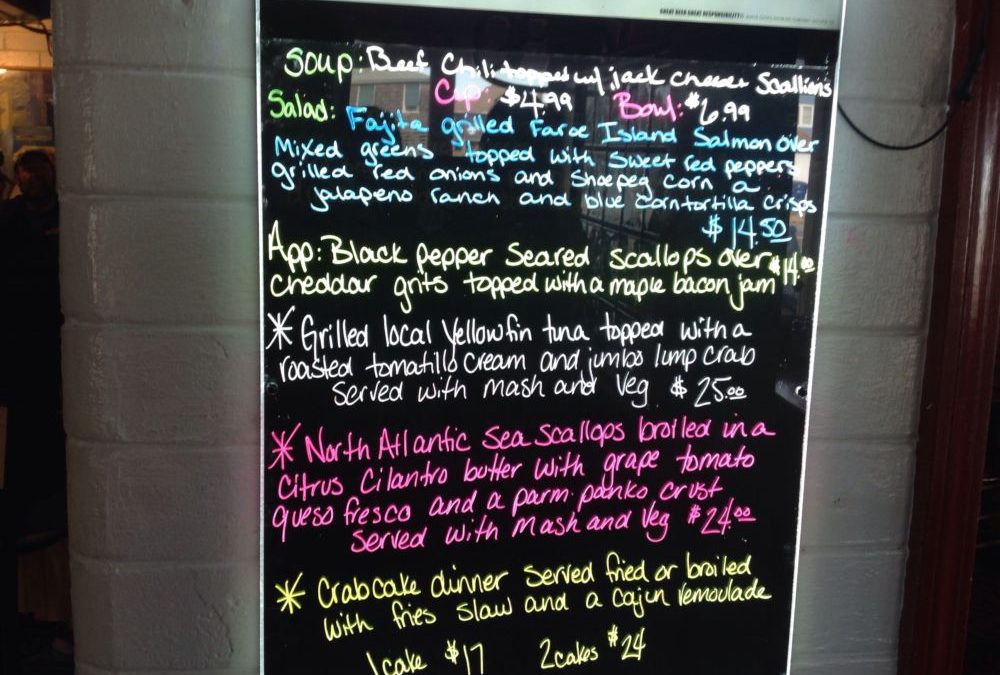 GREAT BEER GREAT RESPONSIBILITY
Soup: Beef Chili topped w/ jack cheese Scallions
Cup: $4.99 Bowl: $6.99
Salad: Fajita grilled Faroe Island Salmon over
Mixed greens topped with sweet red peppers
grilled red onions and shoepeg corn a
jalapeno ranch and blue corn tortilla crisps
$14.50
App: Black pepper seared scallops over $14.00
cheddar grits topped with a maple bacon jam
* Grilled local Yellowfin tuna topped with a
roasted tomatillo cream and jumbo lump crab
served with mash and Veg $25.00
* North Atlantic sea scallops broiled in a
citrus cilantro butter with grape tomato
queso fresco and a parm. panko crust
served with mash and Veg $24.00
* Crabcake dinner served fried or broiled
with fries slaw and a cajun remoulade
1 cake $17 2 cakes $24